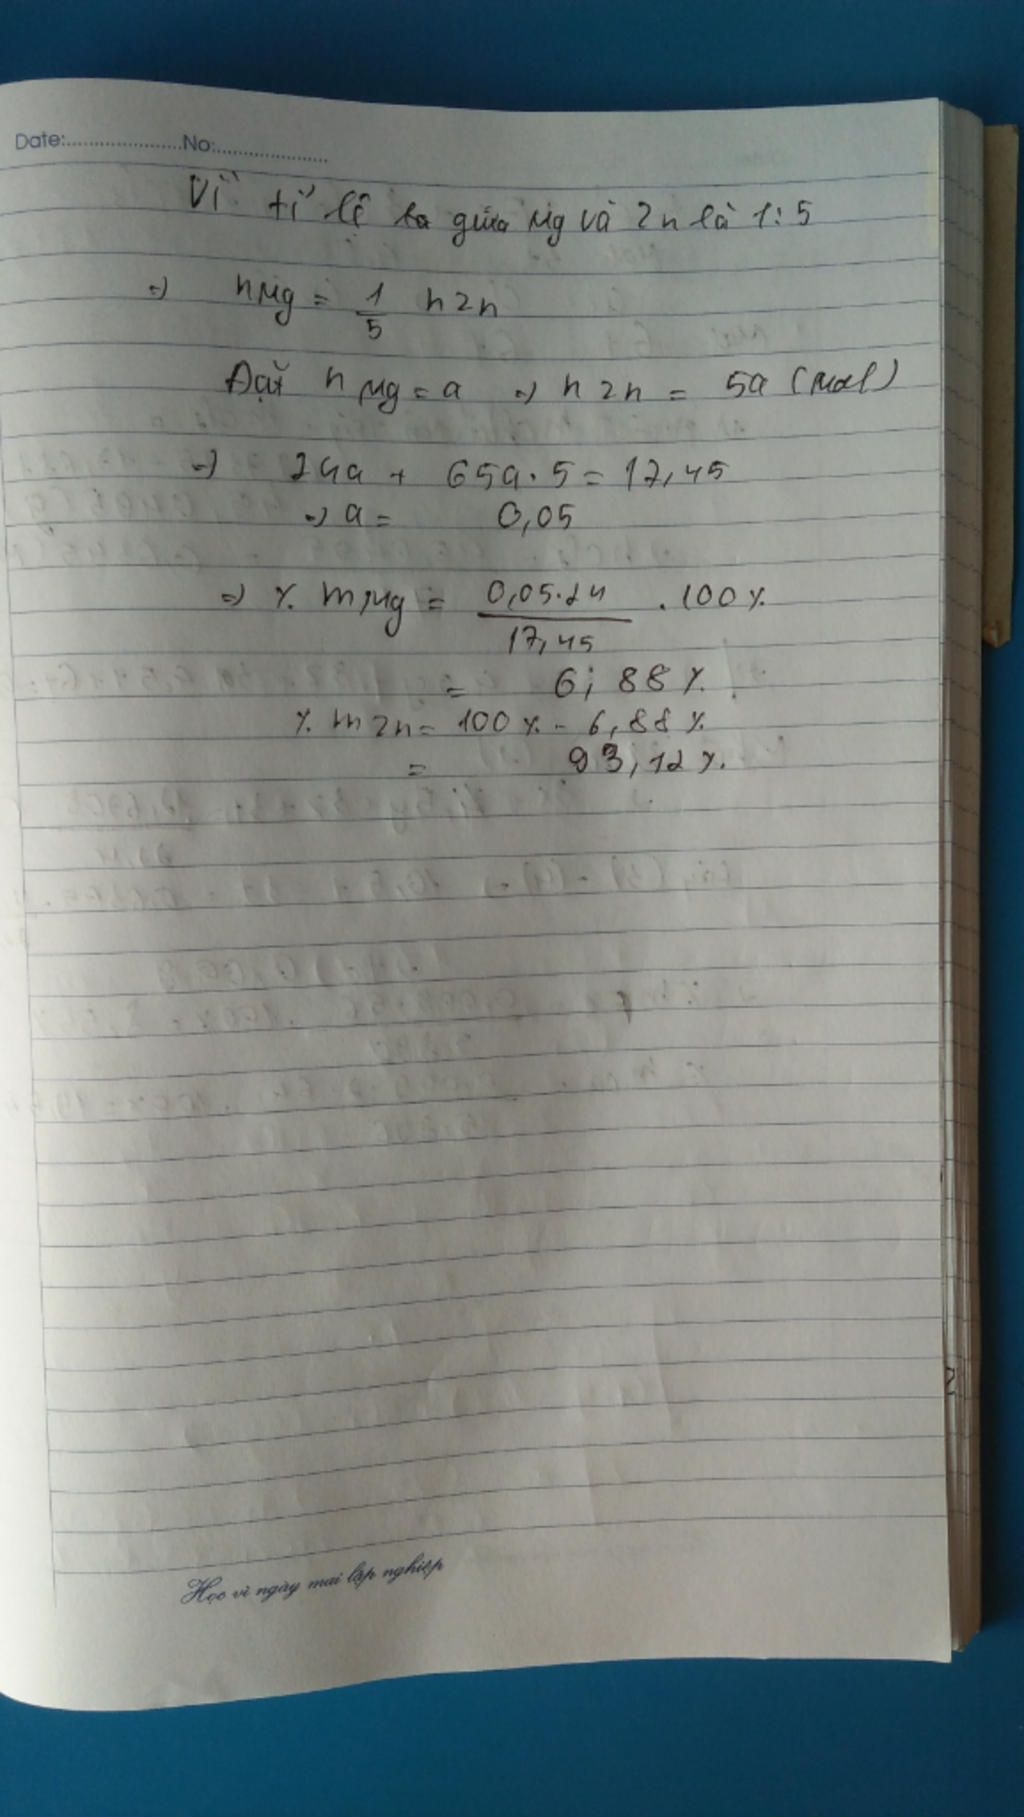 Date:......................No:......................
Vì tỉ lệ ta giữa Mg và Zn là 1:5
=> nMg = 1/5 nZn
Đặt nMg = a => nZn = 5a (mol)
=> 24a + 65a.5 = 17,45
=> a = 0,05
=> % mMg = 0,05.24/17,45 . 100%
= 6,88%
% mZn = 100% - 6,88%
= 93,12%.
Học vì ngày mai lập nghiệp